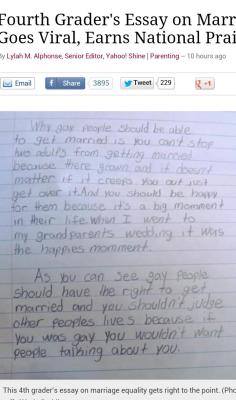 Fourth Grader's Essay on Marr
Goes Viral, Earns National Prai
By Lylah M. Alphonse, Senior Editor, Yahoo! Shine | Parenting – 10 hours ago
Email
Share
3895
Tweet
229
+1
Why gay people should be able
to get married is you can't stop
two adults from getting married
because there grown and it doesnt
matter if it creeps you out just
get over it. And you should be happy
for them because it's a big momment
in their life. When I went to
my grandparents wedding it was
the happies momment.
As you can see gay people
should have the right to get
married and you shouldn't judge
other peoples lives because if
you was gay you wouldn't want
people talking about you.
This 4th grader's essay on marriage equality gets right to the point. (Pho